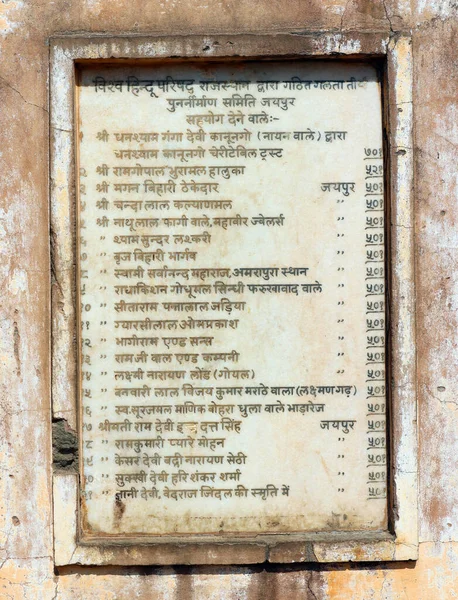 विश्व हिन्दू परिषद् राजस्थान द्वारा गठित गलता तीर्थ
पुनर्निर्माण समिति जयपुर
सहयोग देने वाले:-
१ श्री धनश्याम गंगा देवी कानूनगो (नायन वाले) द्वारा
धनश्याम कानूनगो चेरीटेबिल ट्रस्ट ७०१
२ श्री रामगोपाल भुरामल हालुका ५२१
३ श्री मगन बिहारी ठेकेदार जयपुर ५०१
४ श्री चन्दालाल कल्याणमल " ५०१
५ श्री नाथूलाल फागी वाले, महावीर ज्वेलर्स " ५०१
६ " श्याम सुन्दर लश्करी " ५०१
७ " बृज बिहारी भार्गव " ५०१
८ " स्वामी सर्वानन्द महाराज, अमरापुरा स्थान " ५०१
९ " राधाकिशन गोधूमल सिन्धी फरुखाबाद वाले " ५०१
१० " सीताराम पन्नालाल जड़िया " ५०१
११ " ग्यारसीलाल ओमप्रकाश " ५०१
१२ " भागीराम एण्ड सन्स " ५०१
१३ " रामजी वाल एण्ड कम्पनी " ५०१
१४ " लक्ष्मी नारायण लोंड (गोयल) " ५०१
१५ " बनवारी लाल विजय कुमार मराठे वाला (लक्ष्मणगढ़) " ५०१
१६ " स्व. सूरजमल माणिक बोहरा धुला वाले भाड़ारेज " ५०१
१७ श्रीमती राम देवी दत्त सिंह जयपुर ५०१
१८ " रामकुमारी प्यारे मोहन " ५०१
१९ " केसर देवी बद्री नारायण सेठी " ५०१
२० " सुवस्वी देवी हरि शंकर शर्मा " ५०१
२१ " ज्ञानी देवी, वेदराज जिंदल की स्मृति में " ५०१